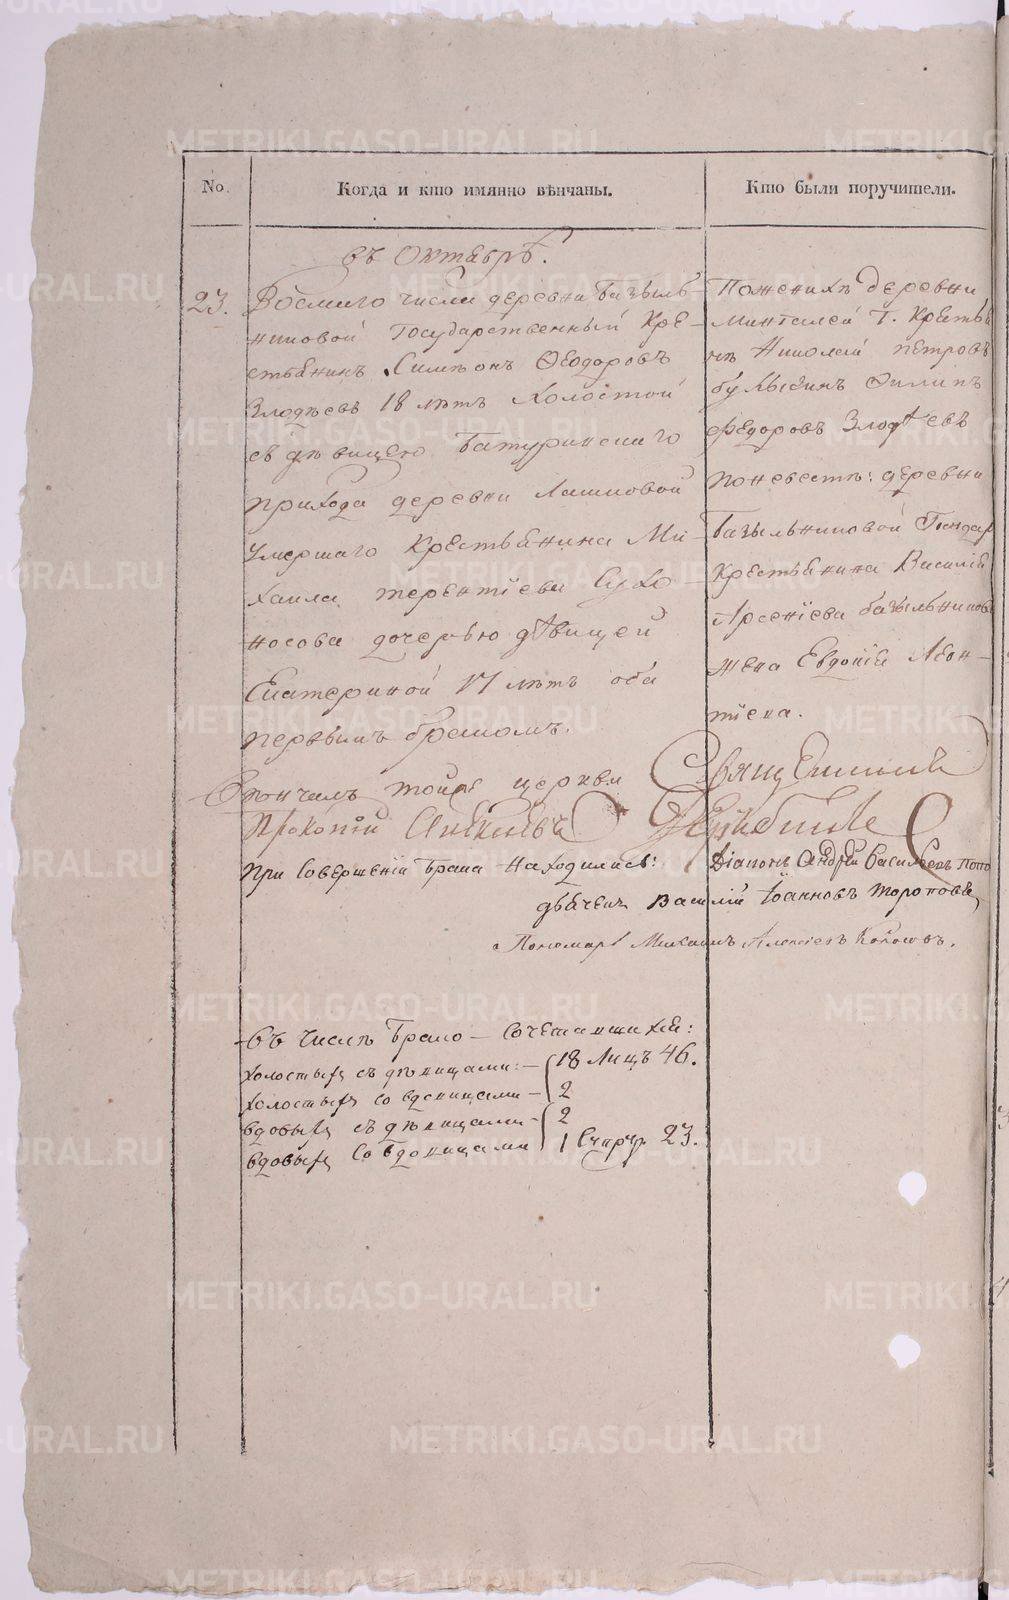 No.
Когда и кто имянно вѣнчаны.
Кто были поручители.
въ Октябрѣ.
23.
Восмаго числа деревни Базыль
никовой Государственный Кре-
стьянинъ Симеонъ Феодоровъ
Злодѣевъ 18 лѣтъ Холостой
съ дѣвицею Батуринскаго
прихода деревни Лашковой
умершаго Крестьянина Ми-
хаила терентіева Сухо-
носова дочерью дѣвицей
Екатериной 17 лѣтъ оба
первымъ бракомъ.
По женихѣ деревни
Николай петровъ
Филипъ
Федоровъ Злодѣевъ
по невестѣ: деревни
Базыльниковой
Крестьянина Василія
Арсеніева базыльникова
жена Евдокія Леон-
тіева.
Венчалъ тойже церкви Священникъ
Прокопій
При Совершеніи брака находились: Діаконъ Андрей Васильевъ попо
дьячекъ Василій Іоанновъ Тороповъ
Пономарь Михаилъ Алексіевъ
Въ числѣ брако-сочетавшихся:
холостыхъ съ дѣвицами: - 18 Лицъ 46.
холостыхъ со вдовицами - 2
вдовыхъ съ дѣвицами - 2
вдовыхъ со вдовицами 1 23.
METRIKI.GASO-URAL.RU